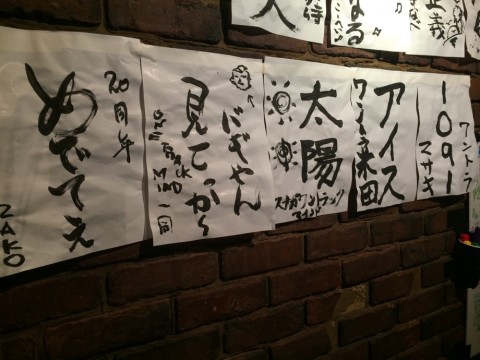 正義
なる
待
人
1091
ワントラ
マサキ
アイス
ワントラ米田
太陽
スナガワントラック
マインド
にぎやん
見てっから
one TRACK
MIND 一同
20周年
めでてぇ
ZAKO